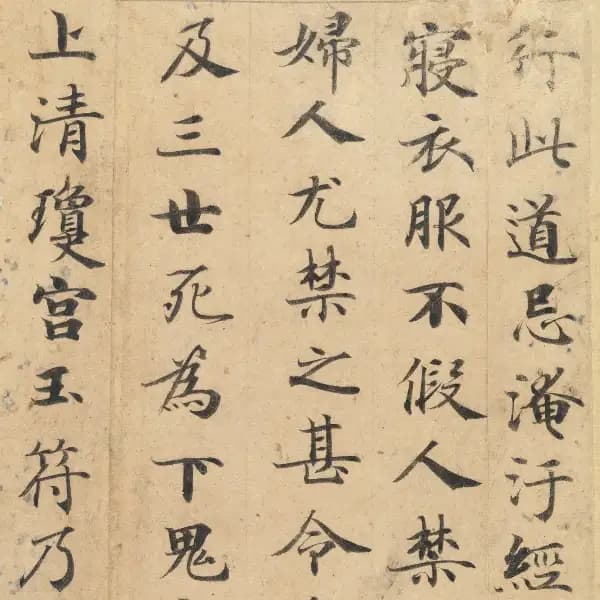 行此道忌淹汙經
寢衣服不假人禁
婦人尤禁之甚令
及三世死為下鬼
上清瓊宮玉符乃